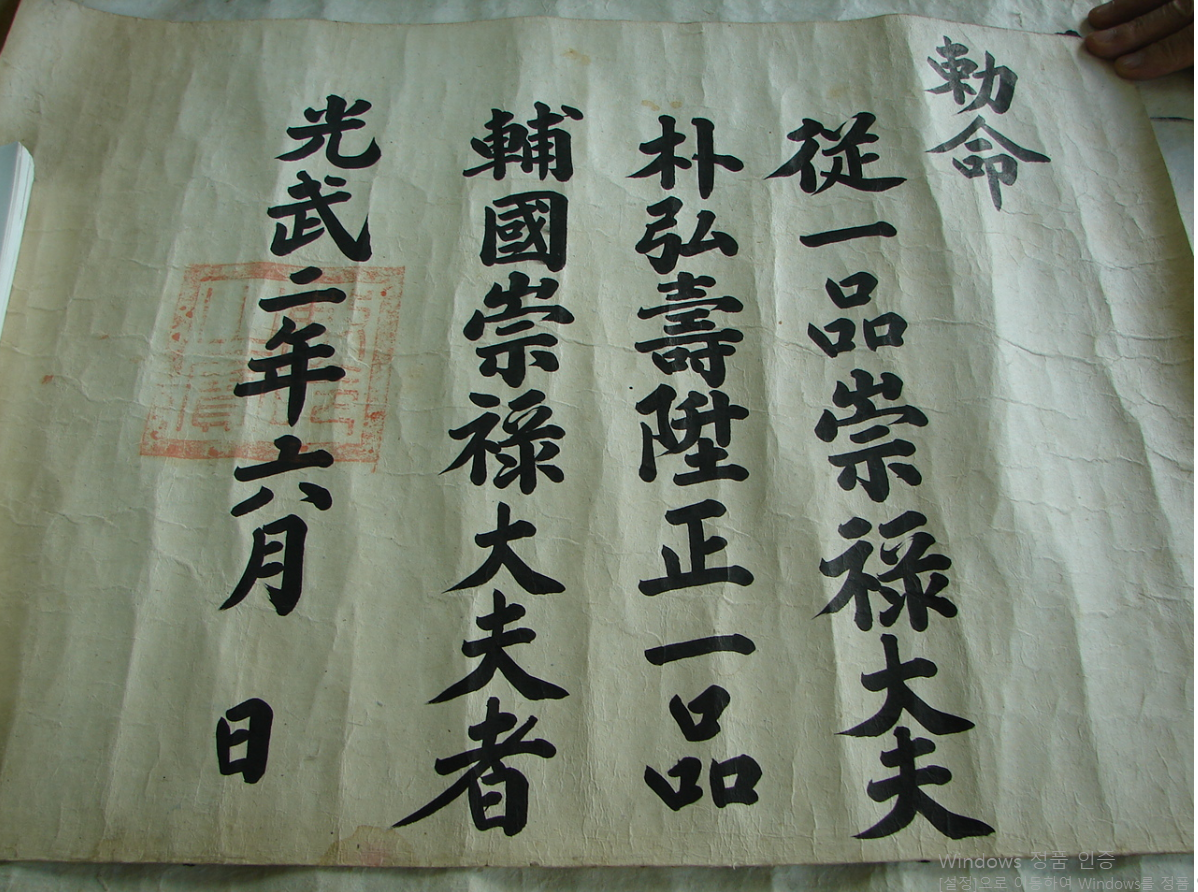 勅命
従一品崇禄大夫
朴弘壽陞正一品
輔國崇禄大夫者
光武二年六月　日
Windows 정품 인증
[설정]으로 이동하여 Windows를 정품